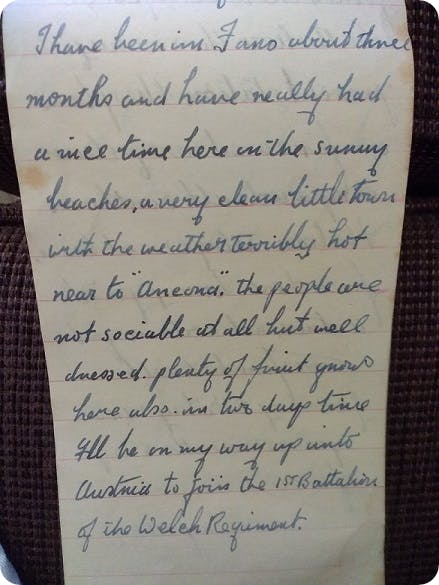 I have been in Fano about three
months and have really had
a nice time here in the sunny
beaches, a very clean little town
with the weather terribly hot
near to "Ancona". the people are
not sociable at all but well
dressed. plenty of fruit grows
here also. in two days time
I'll be on my way up into
Austria to join the 1ST Battalion
of the Welch Regiment.